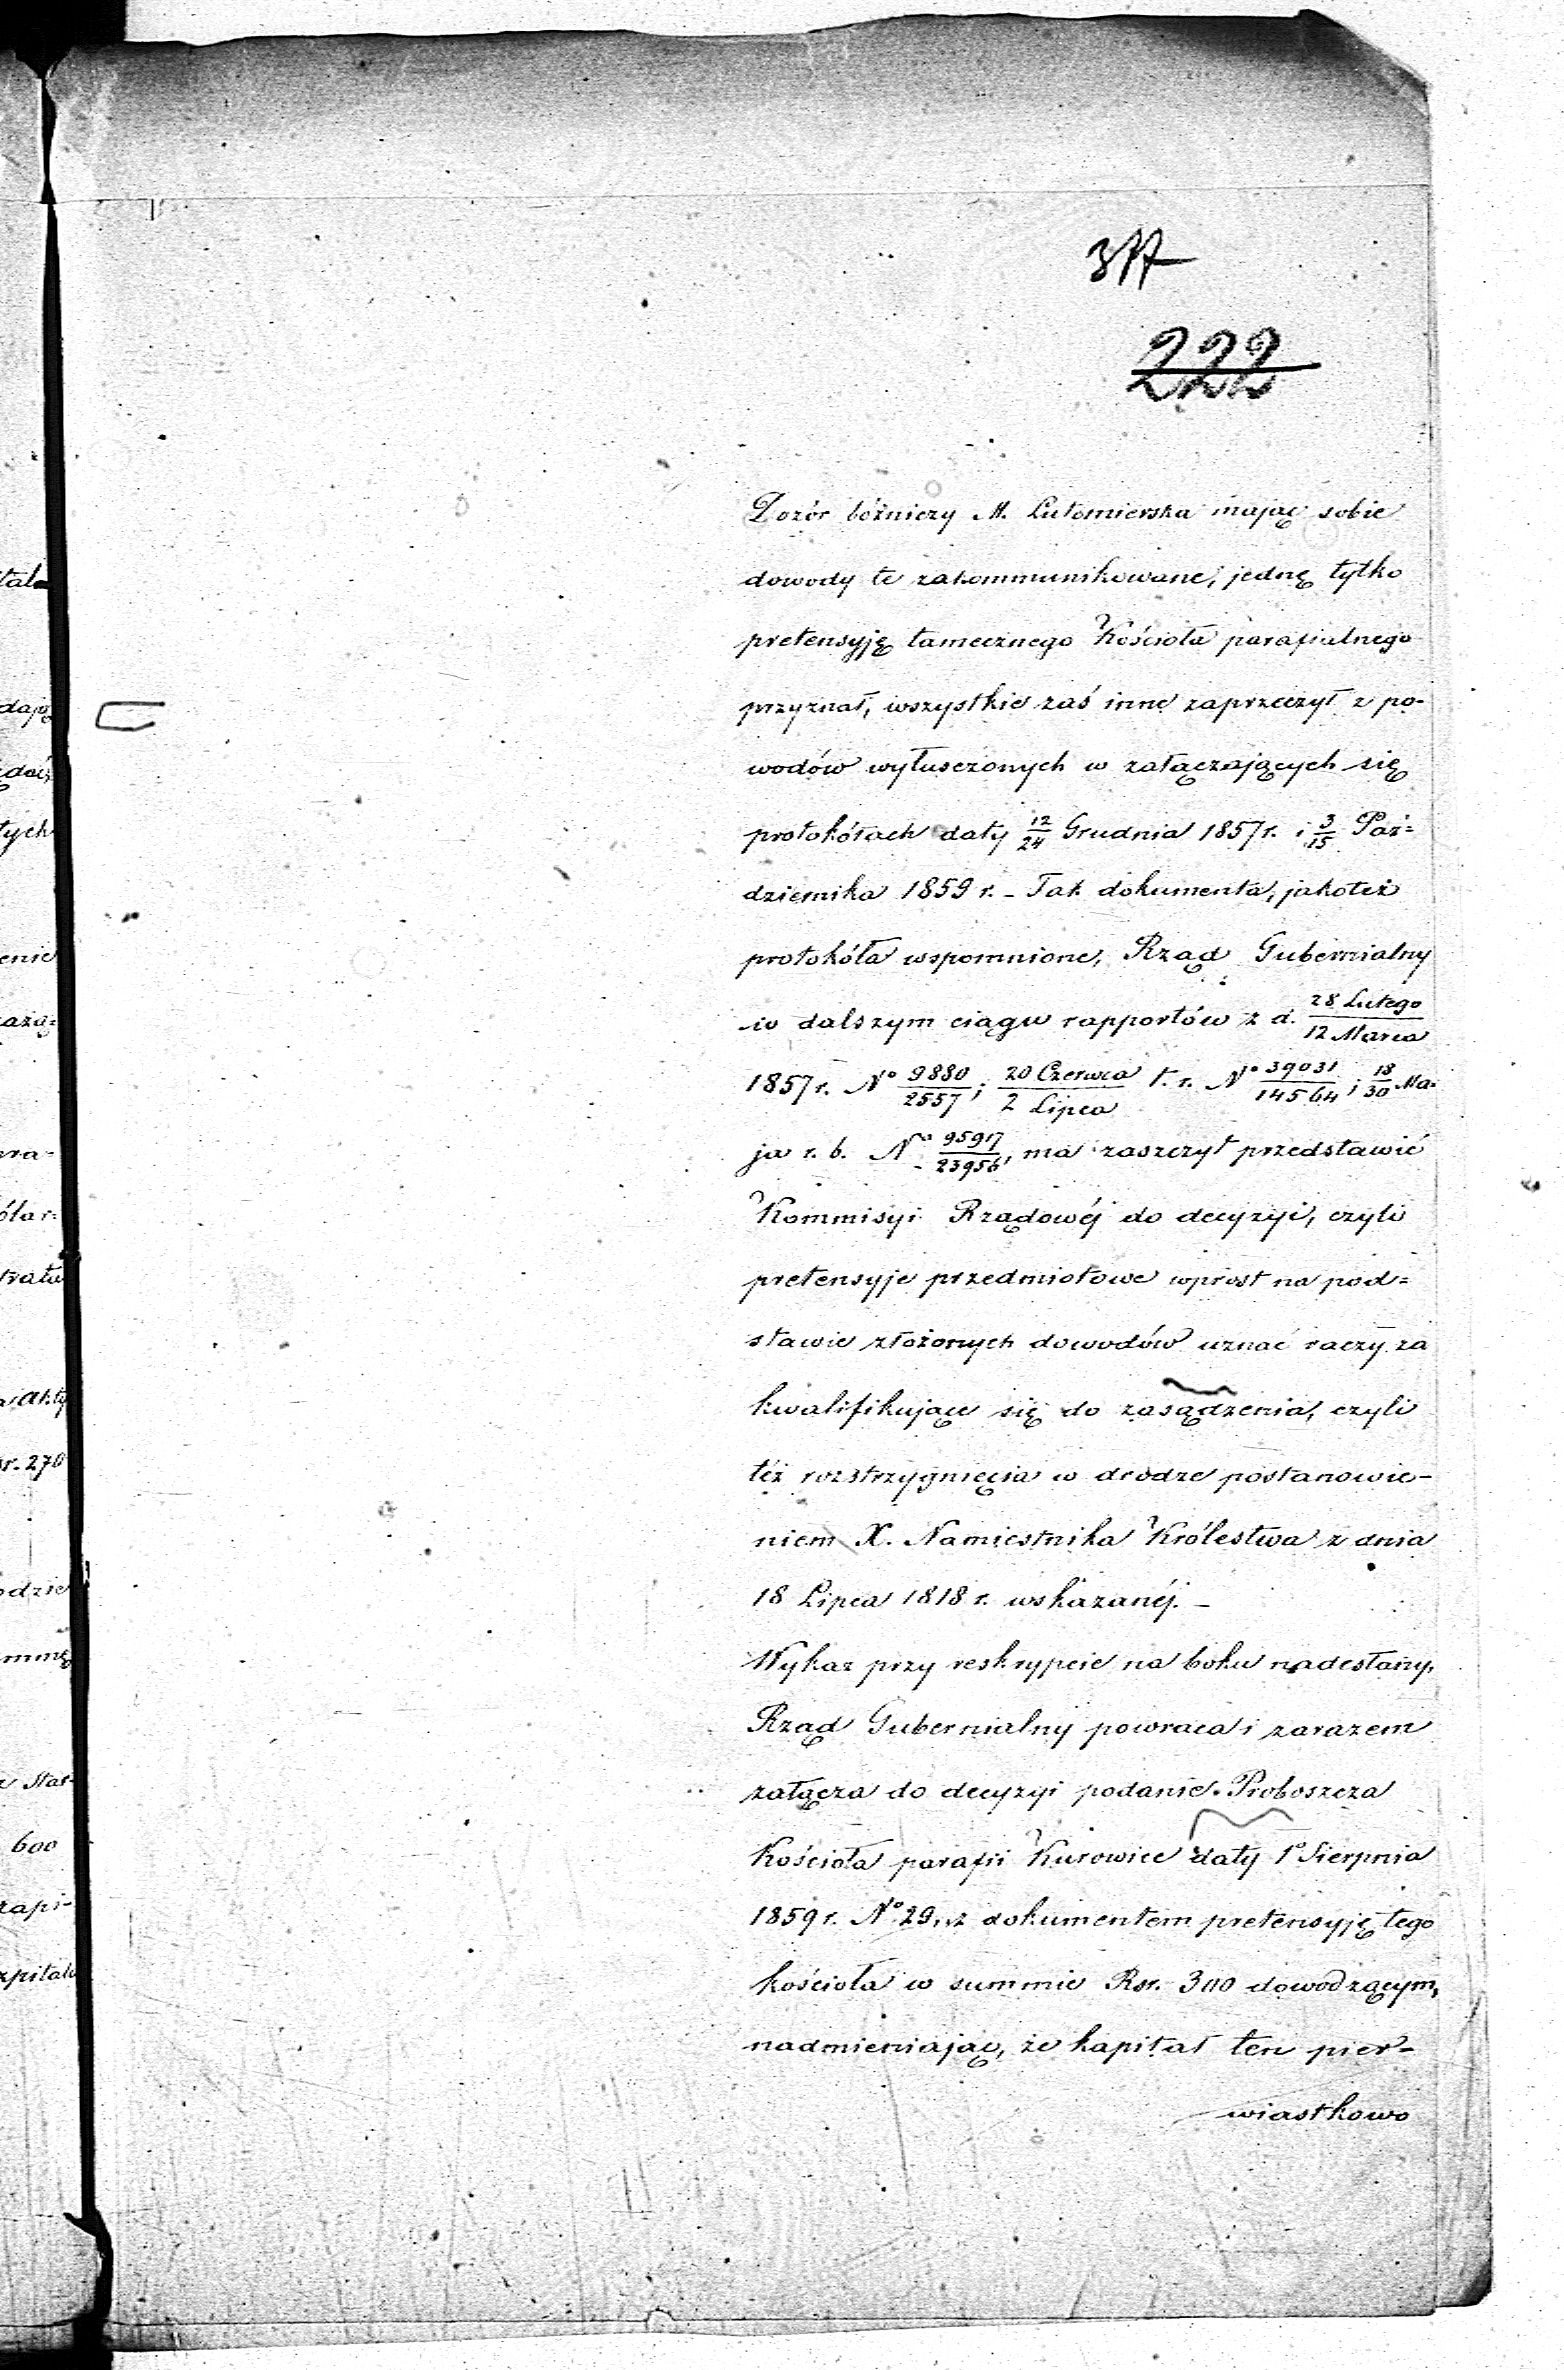 222
Dozór bóżniczy M. Lutomierska mając sobie
dowody te zakommunikowane, jednę tylko
pretensyję tamecznego Kościoła parafialnego
przyznał, wszystkie zaś inne zaprzeczył z po-
wodów wyłuszczonych w załączających się
protokółach daty 12/24 Grudnia 1857 r. i 3/15 Paź=
dziernika 1859 r. - Tak dokumenta, jakoteż
protokóła wspomnione, Rząd Gubernialny
w dalszym ciągu rapportów z d. 28 Lutego/12 Marca
1857 r. No 9880/2557; 20 Czerwca/2 Lipca t. r. No 39031/14564; 18/30 Ma=
ja r. b. No 95917/23956, ma zaszczyt przedstawić
Kommisyi Rządowéj do decyzyi, czyli
pretensyje przedmiotowe wprost na pod=
stawie złożonych dowodów uznać raczy za
kwalifikujące się do zasądzenia, czyli
też rozstrzygnięcia w drodze postanowie-
niem X. Namiestnika Królestwa z dnia
18 Lipca 1818 r. wskazanéj. -
Wykaz przy reskrypcie na boku nadesłany,
Rząd Gubernialny powraca i zarazem
załącza do decyzyi podanie Proboszcza
Kościoła parafii Kurowice daty 1o Sierpnia
1859 r. No 29, z dokumentem pretensyję tego
kościoła w summie Rsr. 300 dowodzącym,
nadmieniając, że kapitał ten pier-
wiastkowo